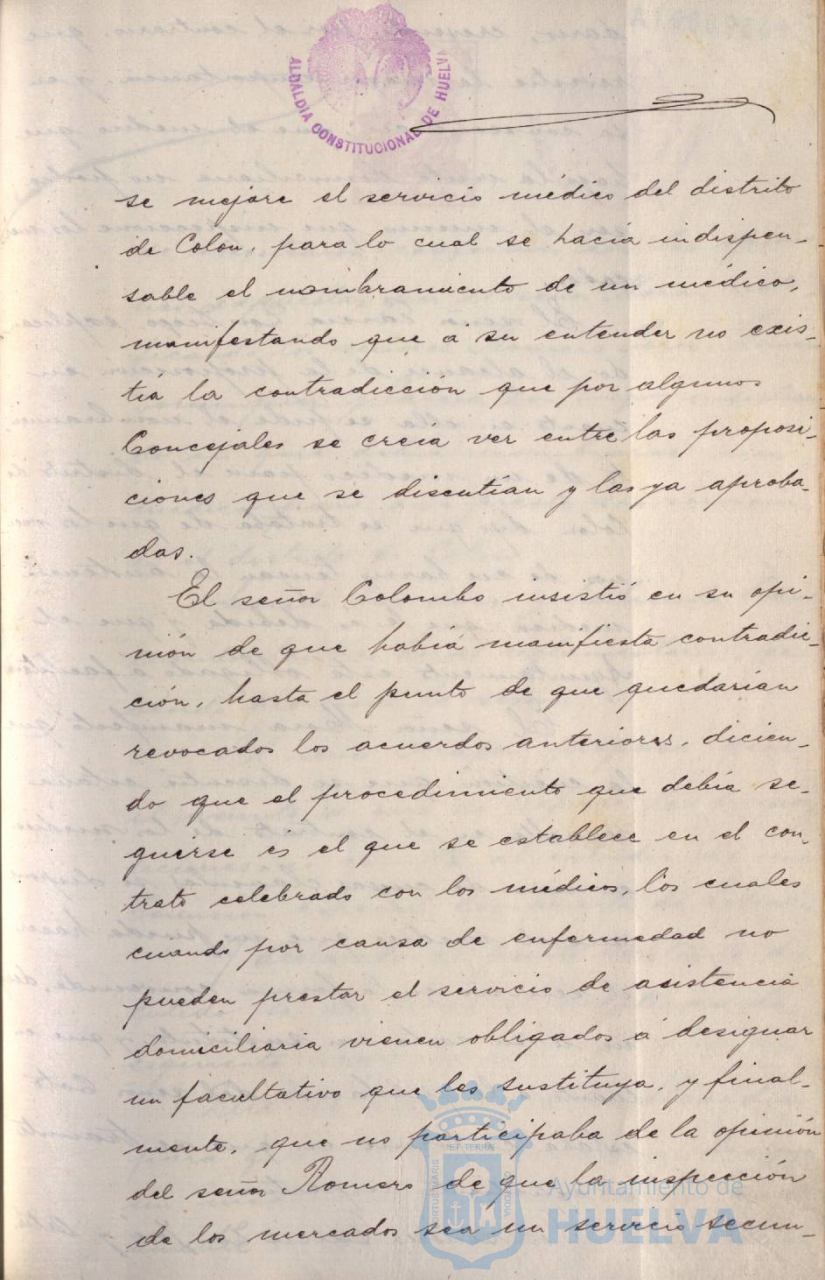 ALCALDIA CONSTITUCIONAL DE HUELVA
se mejore el servicio médico del distrito
de Colon, para lo cual se hacia indispen-
sable el nombramiento de un médico,
manifestando que á su entender no exis-
tia la contradicción que por algunos
Concejales se creia ver entre las proposi-
ciones que se discutían y las ya aproba-
das.
El señor Colombo insistió en su opi-
nión de que habia manifiesta contradic-
ción, hasta el punto de que quedarían
revocados los acuerdos anteriores, dicien-
do que el procedimiento que debia se-
guirse es el que se establece en el con-
trato celebrado con los médicos, los cuales
cuando por causa de enfermedad no
pueden prestar el servicio de asistencia
domiciliaria vienen obligados á designar
un facultativo que les sustituya, y final-
mente, que no participaba de la opinión
del señor Romero de que la inspección
de los mercados sea un servicio secun-
Ayuntamiento de
HUELVA